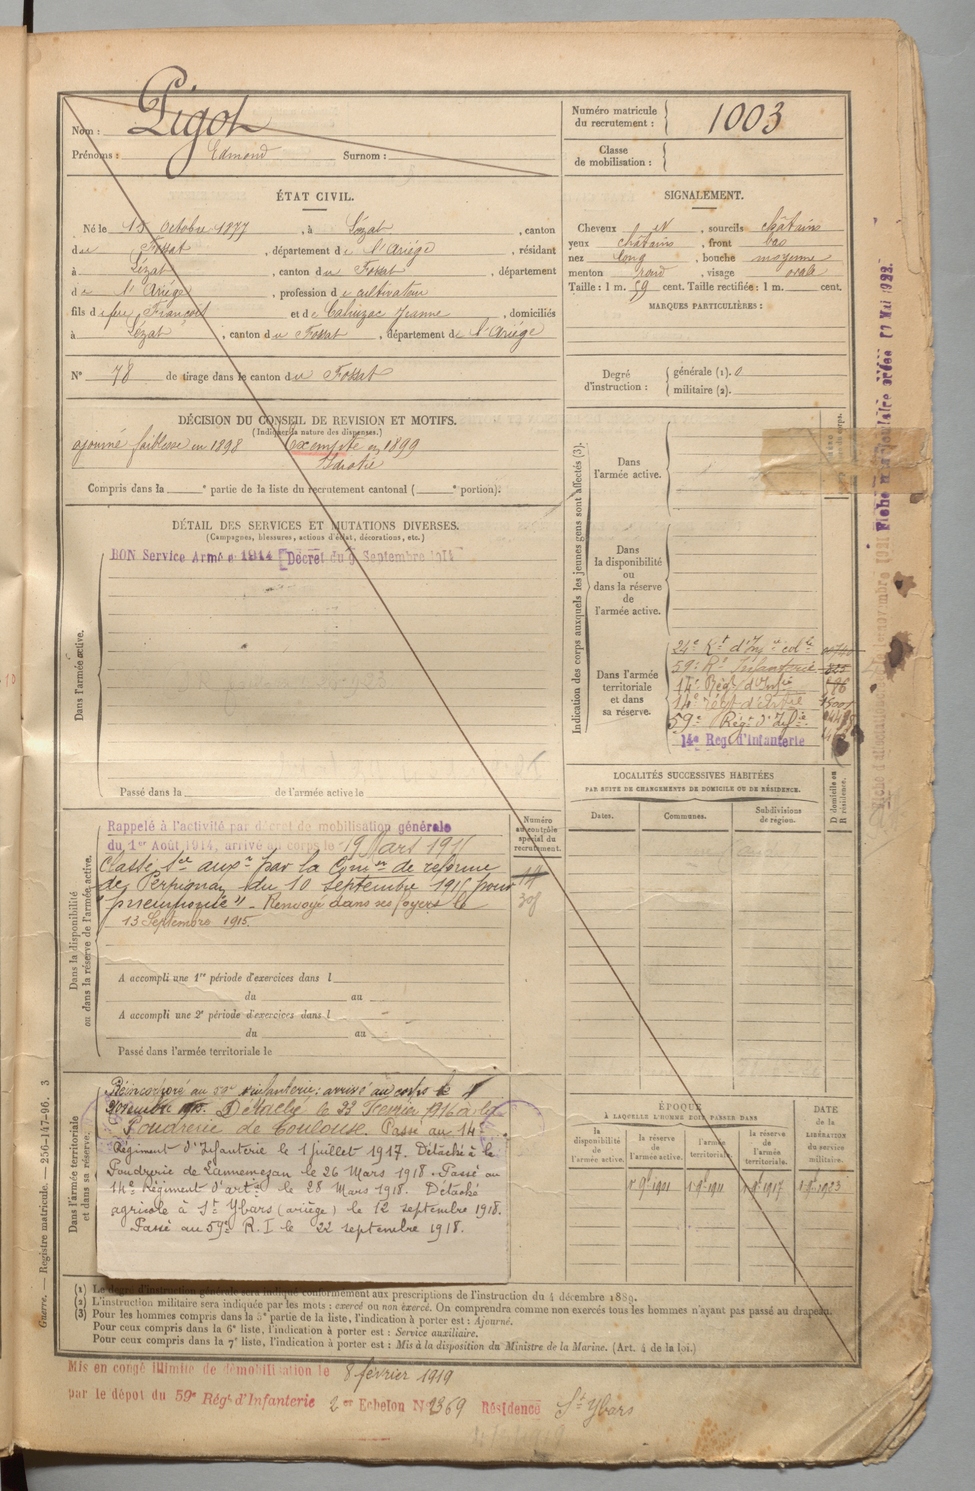 Nom : Pigot
Prénoms : Edmond Surnom :
Numéro matricule du recrutement : 1003
Classe de mobilisation :
ÉTAT CIVIL.
Né le 15 Octobre 1877, à Lézat, canton
du Fossat, département de l'Ariège, résidant
à Lézat, canton du Fossat, département
de l'Ariège, profession de cultivateur
fils de feu François et de Jeanne, domiciliés
à Lézat, canton du Fossat, département de l'Ariège
N° 78 de tirage dans le canton du Fossat
SIGNALEMENT.
Cheveux et, sourcils châtains
yeux châtains, front bas
nez long, bouche moyenne
menton rond, visage ovale
Taille : 1 m. 59 cent. Taille rectifiée : 1 m. cent.
MARQUES PARTICULIÈRES :
Degré d'instruction : générale (1). 0
militaire (2).
DÉCISION DU CONSEIL DE REVISION ET MOTIFS.
(Indiquer la nature des dispenses.)
ajourné faiblesse en 1898 Exempté en 1899
Compris dans la e partie de la liste du recrutement cantonal ( e portion).
DÉTAIL DES SERVICES ET MUTATIONS DIVERSES.
(Campagnes, blessures, actions d'éclat, décorations, etc.)
BON Service Armé 1914 Décret du 9 Septembre 1914
Dans l'armée active.
Passé dans la de l'armée active le
Indication des corps auxquels les jeunes gens sont affectés (3).
Dans l'armée active.
Dans la disponibilité ou dans la réserve de l'armée active.
Dans l'armée territoriale et dans sa réserve.
24e Rt d'Infie colle
59e Rt
14e Régt d'Infie
14e
59e Régt d'Infie
14e Régt d'Infanterie
LOCALITÉS SUCCESSIVES HABITÉES
PAR SUITE DE CHANGEMENTS DE DOMICILE OU DE RÉSIDENCE.
Dates. Communes. Subdivisions de région. D domicile ou R résidence.
Numéro au contrôle spécial du recrutement.
Dans la disponibilité ou dans la réserve de l'armée active.
Rappelé à l'activité par décret de mobilisation générale
du 1er Août 1914, arrivé au corps le 19 Mars 1915
Classé Sce auxre par la Comon de réforme
de Perpignan du 10 septembre 1915 pour
"pneumonie". Renvoyé dans ses foyers le
13 Septembre 1915.
A accompli une 1re période d'exercices dans l
du au
A accompli une 2e période d'exercices dans l
du au
Passé dans l'armée territoriale le
Dans l'armée territoriale et dans sa réserve.
Réincorporé au 59e d'infanterie : arrivé au corps le
Novembre 1915. Détaché le 23 Février 1916 à la
Poudrerie de Toulouse. Passé au 14e
Régiment d'Infanterie le 1 juillet 1917. Détaché à la
Poudrerie de Lannemezan le 26 Mars 1918. Passé au
14e Régiment d'artie le 28 Mars 1918. Détaché
agricole à St Ybars (ariège) le 12 septembre 1918.
Passé au 59e R.I le 22 septembre 1918.
ÉPOQUE
À LAQUELLE L'HOMME DOIT PASSER DANS
la disponibilité de l'armée active. la réserve de l'armée active. l'armée territoriale. la réserve de l'armée territoriale.
DATE de la LIBÉRATION du service militaire.
1 9bre 1901 1 9bre 1911 1 9bre 1917 1 9bre 1923
(1) Le degré d'instruction générale sera indiqué conformément aux prescriptions de l'instruction du 4 décembre 1889.
(2) L'instruction militaire sera indiquée par les mots : exercé ou non exercé. On comprendra comme non exercés tous les hommes n'ayant pas passé au drapeau.
(3) Pour les hommes compris dans la 5e partie de la liste, l'indication à porter est : Ajourné.
Pour ceux compris dans la 6e liste, l'indication à porter est : Service auxiliaire.
Pour ceux compris dans la 7e liste, l'indication à porter est : Mis à la disposition du Ministre de la Marine. (Art. 4 de la loi.)
Mis en congé illimité de démobilisation le 8 février 1919
par le dépôt du 59e Régt d'Infanterie 2e Echelon N° 2369 Résidence St Ybars
Guerre. — Registre matricule. — 256-147-96. 3